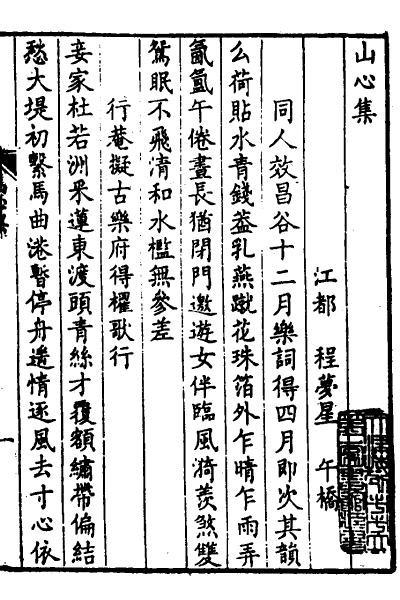 山心集
江都　程夢星　午橋
同人效昌谷十二月樂詞得四月即次其韻
么荷貼水青錢葢乳燕蹴花珠箔外乍晴乍雨弄
氤氳午倦晝長猶閉門邀遊女伴臨風漪羨煞雙
鴛眠不飛淸和水檻無參差
行菴擬古樂府得櫂歌行
妾家杜若洲采蓮東渡頭青絲才覆額繡帶偏結
愁大堤初繫馬曲港暫停舟遺情逐風去寸心依
一